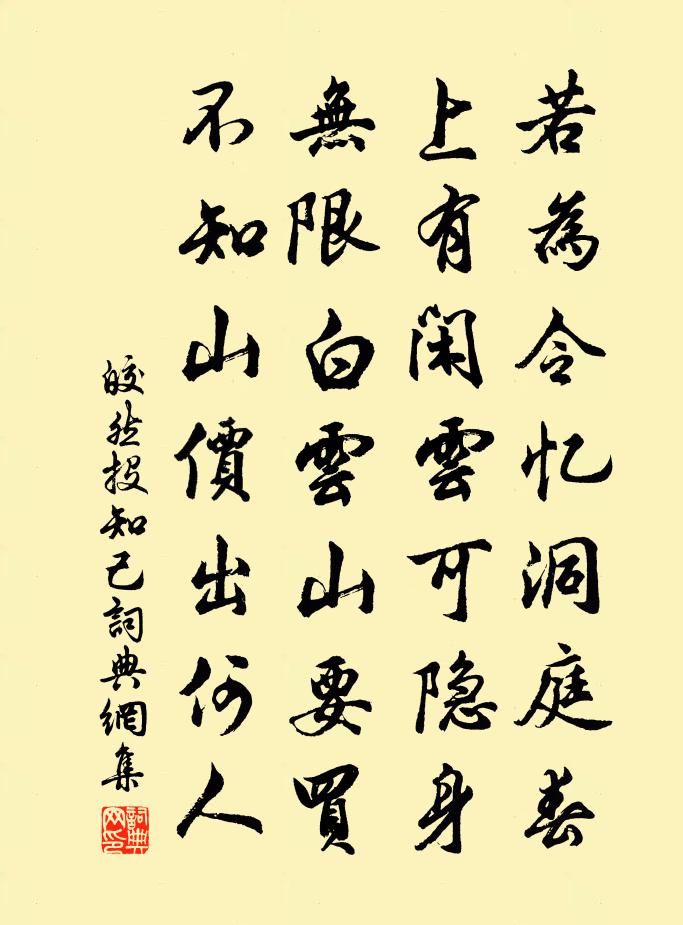 若為令忆洞庭春
上有閑雲可隐身
無限白雲山要買
不知山價出何人
皎然投知己詞典網集
詞典网印